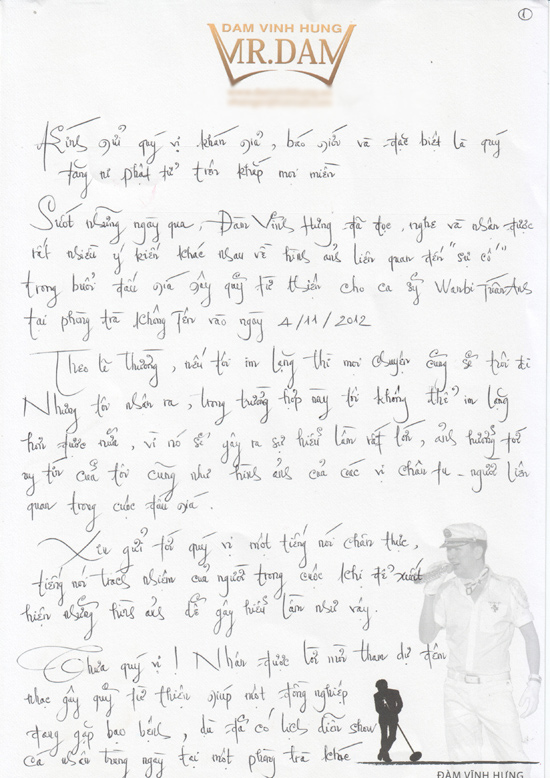 1
DAM VINH HUNG
MR.DAM
Kính gửi quý vị khán giả, báo giới và đặc biệt là quý
tăng ni phật tử trên khắp mọi miền
Suốt những ngày qua, Đàm Vĩnh Hưng đã đọc, nghe và nhận được
rất nhiều ý kiến khác nhau về hình ảnh liên quan đến "sự cố"
trong buổi đấu giá gây quỹ từ thiện cho ca sỹ Wanbi Tuấn Anh
tại phòng trà Không Tên vào ngày 4/11/2012
Theo lẽ thường, nếu tôi im lặng thì mọi chuyện cũng sẽ trôi đi
Nhưng tôi nhận ra, trong trường hợp này tôi không thể im lặng
hơn được nữa, vì nó sẽ gây ra sự hiểu lầm rất lớn, ảnh hưởng tới
uy tín của tôi cũng như hình ảnh của các vị chân tu - người liên
quan trong cuộc đấu giá.
Xin gửi tới quý vị một tiếng nói chân thực,
tiếng nói trách nhiệm của người trong cuộc khi để xuất
hiện những hình ảnh dễ gây hiểu lầm như vậy.
Thưa quý vị! Nhận được lời mời tham dự đêm
nhạc gây quỹ từ thiện giúp một đồng nghiệp
đang gặp bạo bệnh, dù đã có lịch diễn show
cá nhân trùng ngày tại một phòng trà khác
ĐÀM VĨNH HƯNG